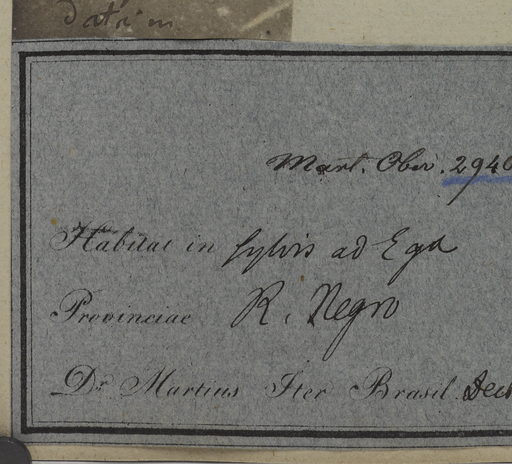 Mart. Obs. 2940
Habitat in sylvis ad Ega
Provinciae R. Negro
Dr. Martius Iter Brasil. Dec